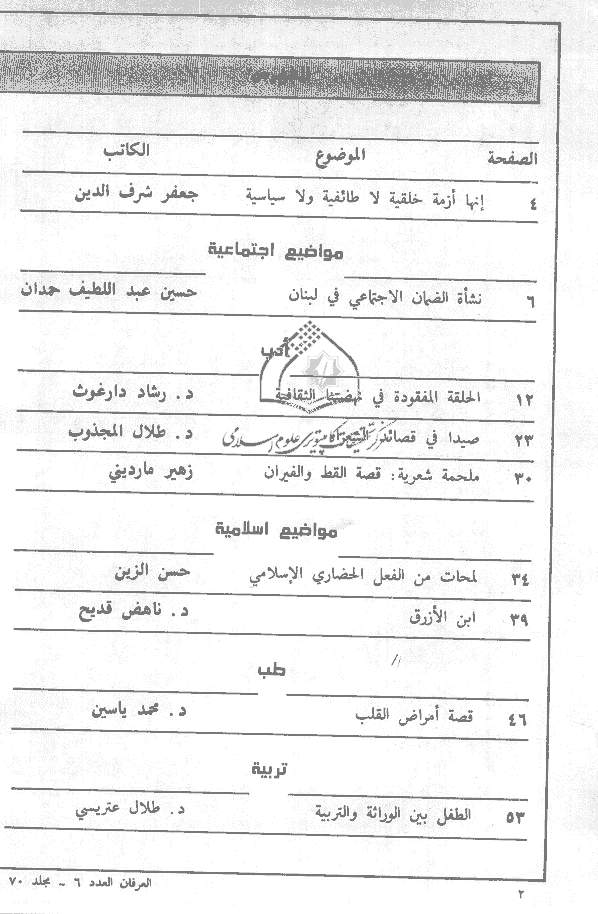 الصفحة الموضوع الكاتب
٤ إنها أزمة خلقية لا طائفية ولا سياسية جعفر شرف الدين
مواضيع اجتماعية
٦ نشأة الضمان الاجتماعي في لبنان حسين عبد اللطيف حمدان
أدب
١٢ الحلقة المفقودة في نهضتنا الثقافية د. رشاد دارغوث
٢٣ صيدا في قصائد د. طلال المجذوب
٣٠ ملحمة شعرية: قصة القط والفيران زهير مارديني
مواضيع اسلامية
٣٤ لمحات من الفعل الحضاري الإسلامي حسن الزين
٣٩ ابن الأزرق د. ناهض قديح
طب
٤٦ قصة أمراض القلب د. محمد ياسين
تربية
٥٣ الطفل بين الوراثة والتربية د. طلال عتريسي
٢ العرفان العدد ٦ ـ مجلد ٧٠